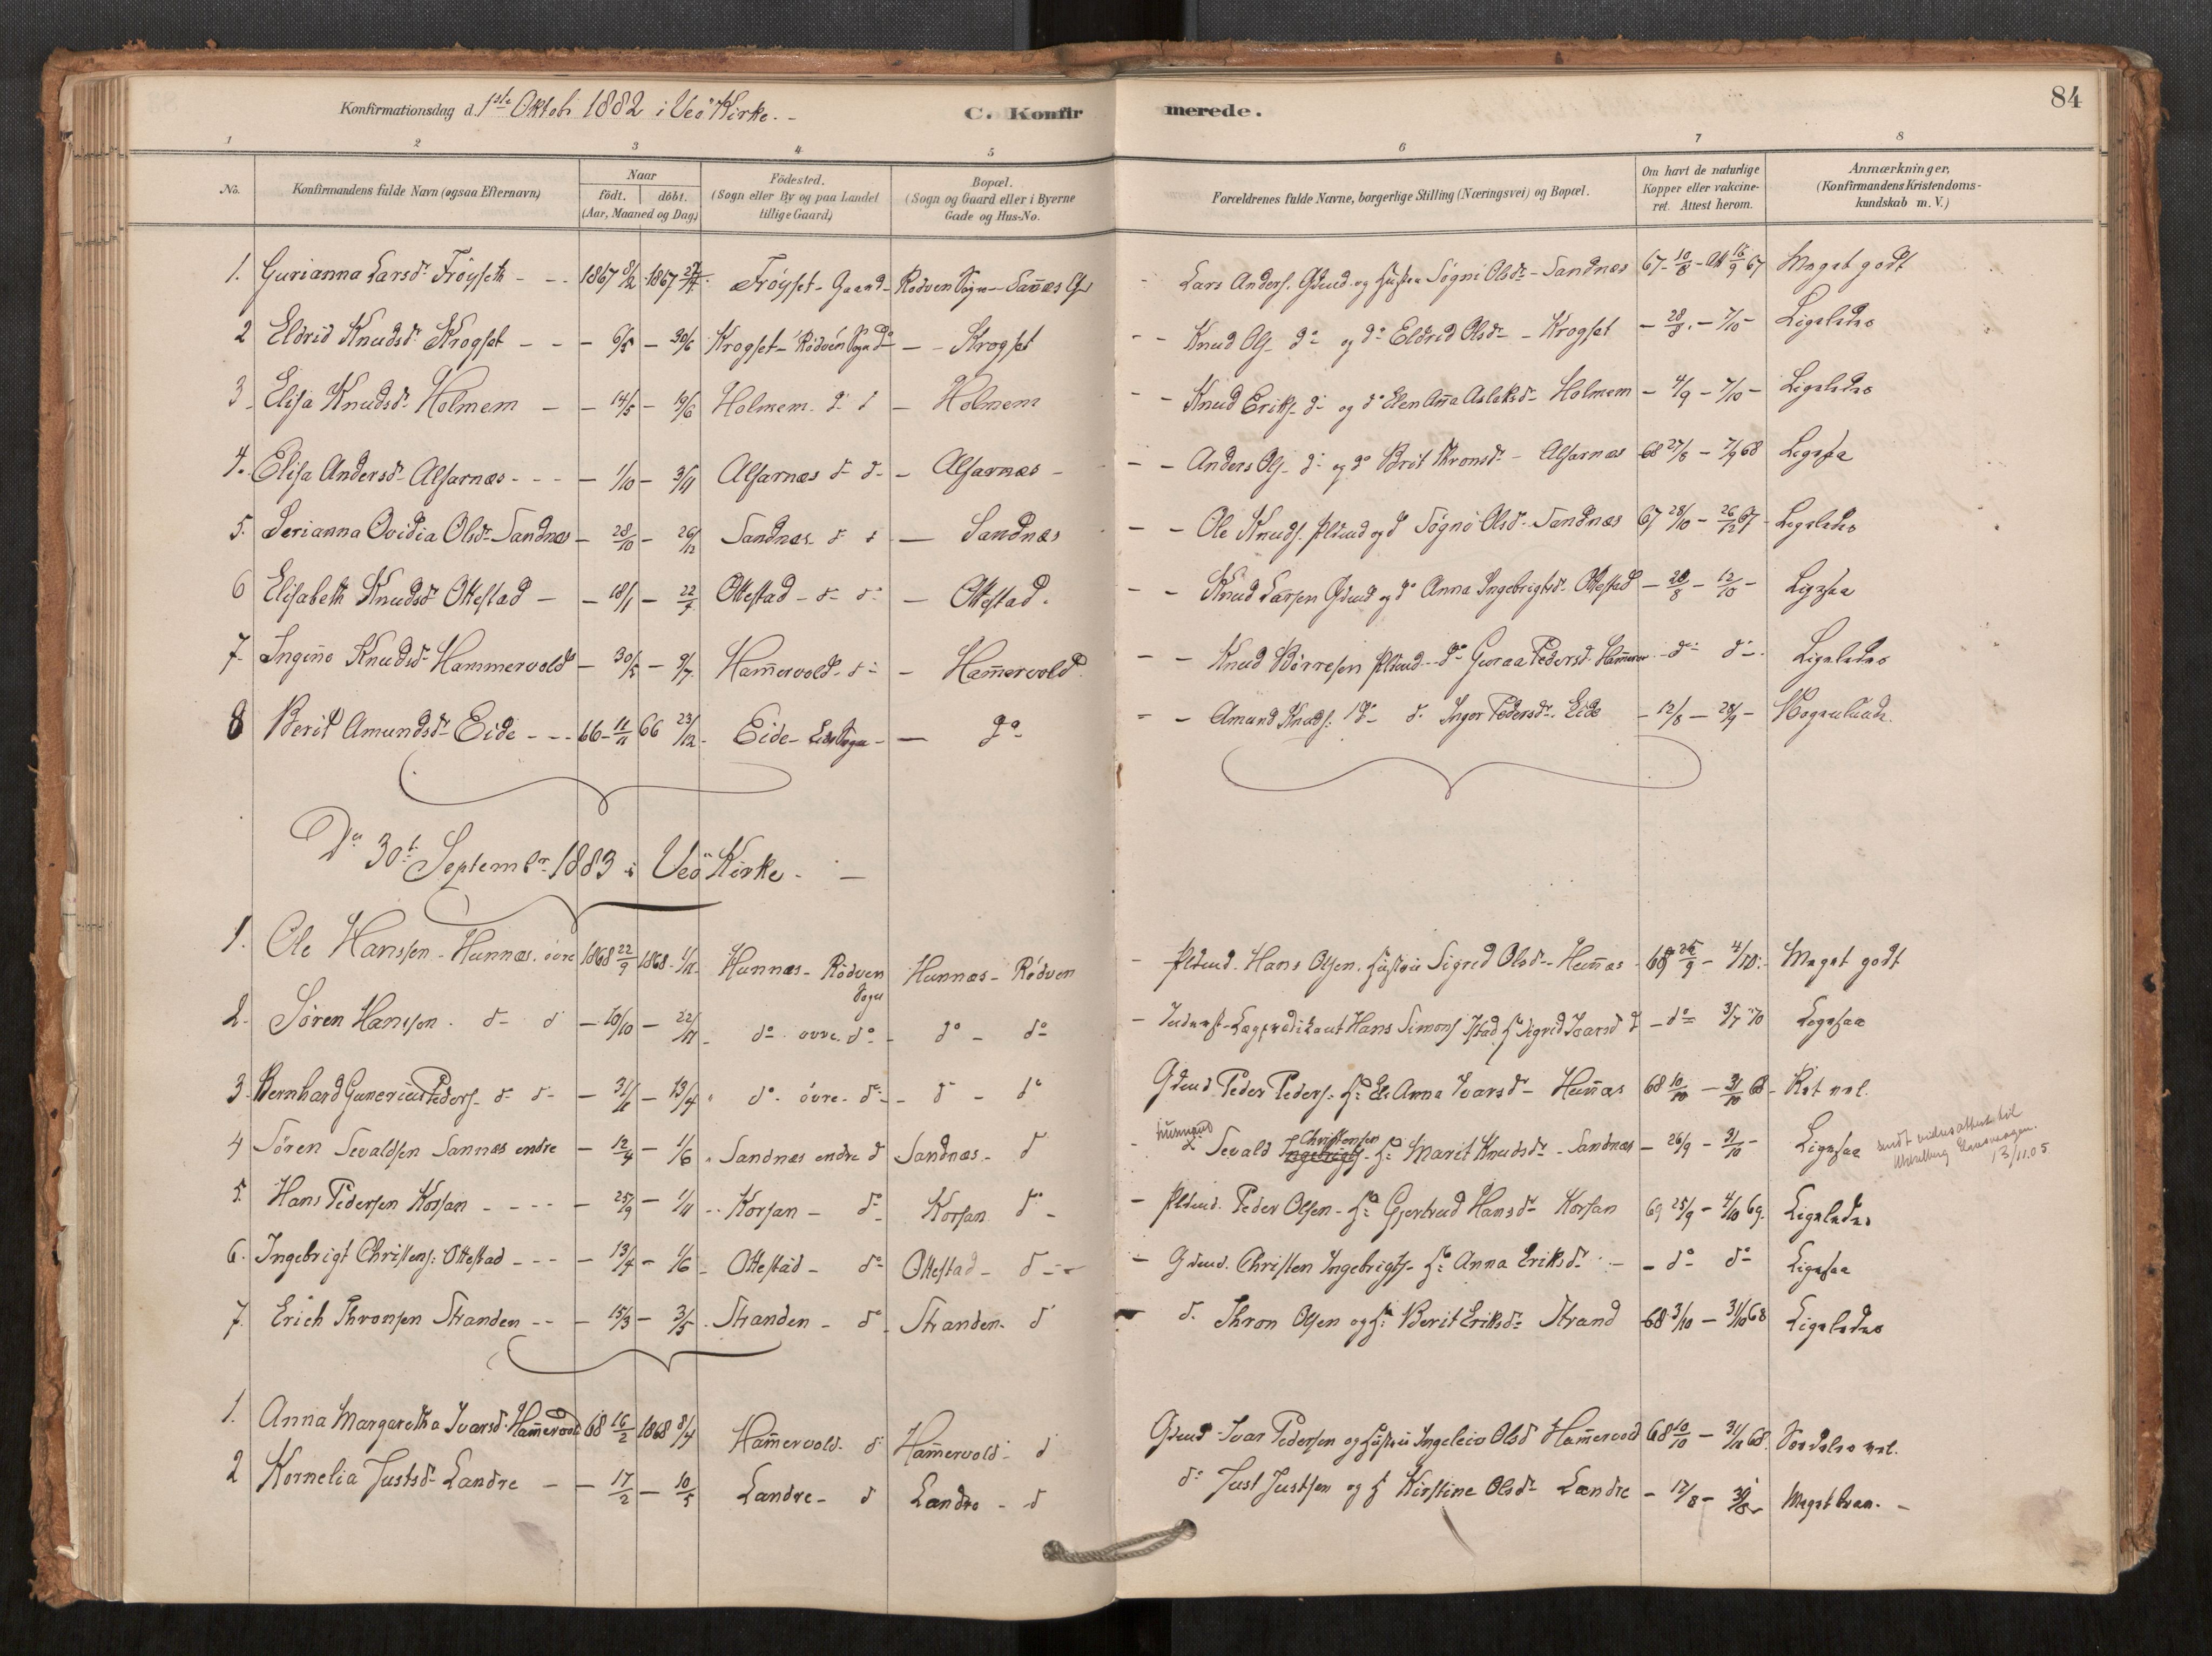 84
Konfirmationsdag d. 1ste Oktobr 1882 i Veö Kirke. -
C. Konfirmerede.
1 2 3 4 5 6 7 8
No. Konfirmandens fulde Navn (ogsaa Efternavn) Naar födt. döbt. (Aar, Maaned og Dag) Födested. (Sogn eller By og paa Landet tillige Gaard) Bopæl. (Sogn og Gaard eller i Byerne Gade og Hus-No. Forældrenes fulde Navne, borgerlige Stilling (Næringsvei) og Bopæl. Om havt de naturlige Kopper eller vakcineret. Attest herom. Anmærkninger, (Konfirmandens Kristendomskundskab m. V.)
1. Gurianna Larsdr Fröyseth - - 1867 1867 Fröyset - Gaard - Rödven Sogn - Lars Anders. Gdmd. og Hustru Sögni Olsdr - Sandnæs 67 - 10/8 - 16/9 67 Meget godt
2 Eldrid Knudsdr Krogset - - - 6/5 - 30/6 Krogset - Rödven Sogn - - Krogset - - Knud Ols. do og do Eldrid Olsdr - Krogset - 28/8 - 7/10 - Ligeledes
3 Elisa Knudsdr Holmem - - 14/5 - 19/6 Holmem do d - Holmem - - Knud Eriks. do og do Elen Anna Aslaksdr Holmem - 4/9 - 7/10 - Ligeledes
4. Elisa Andersdr Alfarnæs - - - - 1/10 - 3/11 Alfarnæs d d - Alfarnæs - - - Anders Ols. do og do Brit Thronsdr - Alfarnæs 68 27/8 - 7/9 68 Ligesaa
5. Serianna Ovidia Olsdr Sandnæs - 28/10 - 26/12 Sandnæs d d - Sandnæs - - Ole Knuds. Pldmd og d Sögnö Olsdr Sandnæs 67 28/10 - 26/12 67 - Ligeledes
6 Elisabeth Knudsdr Ottestad - - 18/1 - 22/4 Ottestad - d d - Ottestad. - - Knud Larsen Gdmd og do Anna Ingebrigtsdr Ottestad - 28/8 - 12/10 - Ligesaa
7- Knudsdr Hammervold - 30/5 - 9/7 Ham̄ervold d - Ham̄ervold - - Knud Börresen Pldmd - do Guraa Pedersdr - do do Ligeledes
8 Berit Amundsdr Eide - - - 66 - 11/11 66 23/12 - Eide - Eids Sogn - - do - - Amund Knuds. do d. Inger Pedersdr Eide - 12/8 - 28/9 -
Dn 30te Septembr 1883 i Veö Kirke - -
1. Ole Hanssen - Hunnæs. övre 1868 22/9 1868 Hunnæs - Rödven Sogn Hunnæs - Rödven - Pldmd. Hans Olsen. Hustru Sigrid Olsdr - Hun̄æs - 69 25/9 - 4/10 - Meget godt
2. Sören Hanssen. d - d - 10/10 - 22/11 - do övre. do - do - do - Inderst - Lægprædikant Hans Simons. Istad Ho Sigrid Ivarsdr d - do 3/7 70 Ligesaa
3. Bernhard Gunerius Peders. d d - 31/1 - 13/4 " do övre. do - d - do Gdmd. Peder Peders. Ho El. Anna Ivarsdr - Hun̄æs 68 10/10 - 31/10 68 - Ret vel.
4 Sören Sevaldsen Sannæs endre - 12/4 - 1/6 " Sandnæs endre d Sandnæs - d - Husmand Sevald Ingebrigts. Christensen Ho Marit Knudsdr - Sandnæs - 26/9 - 31/10 - Ligesaa sendt vidnesattest til 13/11.05
5. Hans Pedersen Korsan - - - - - 25/9 - 1/11 - Korsan - do Korsan do - - Pldmd. Peder Olsen - Ho Gjertrud Hansdr Korsan 69 25/9 - 4/10 69. Ligeledes
6. Ingebrigt Christens: Ottestad - - - 13/4 - 1/6 - Ottestad - do Ottestad - d - - Gdmd. Christen Ingebrigts. Ho Anna Eriksdr - - do do Ligesaa
7. Erich Thronsen Stranden - - - 15/3 - 3/5 - Stranden - do Stranden - d d. Thron Olsen og Ho Berit Eriksdr Strand 68 3/10 - 31/10 68 Ligeledes
1. Anna Margaretha Ivarsdr Ham̄ervold 68 16/2 1868 8/4 Ham̄ervold d Ham̄ervold d Gdmd Ivar Pedersen og Hustru Ingeleiv Olsd Ham̄ervold 68 10/10 - 31/10 68. Særdeles vel.
2 Kornelia Justsdr Landre - - 17/2 - 10/5 Landre - d Landre - d do Just Justsen og H Kirstine Olsdr Lændre - 17/8 - Meget